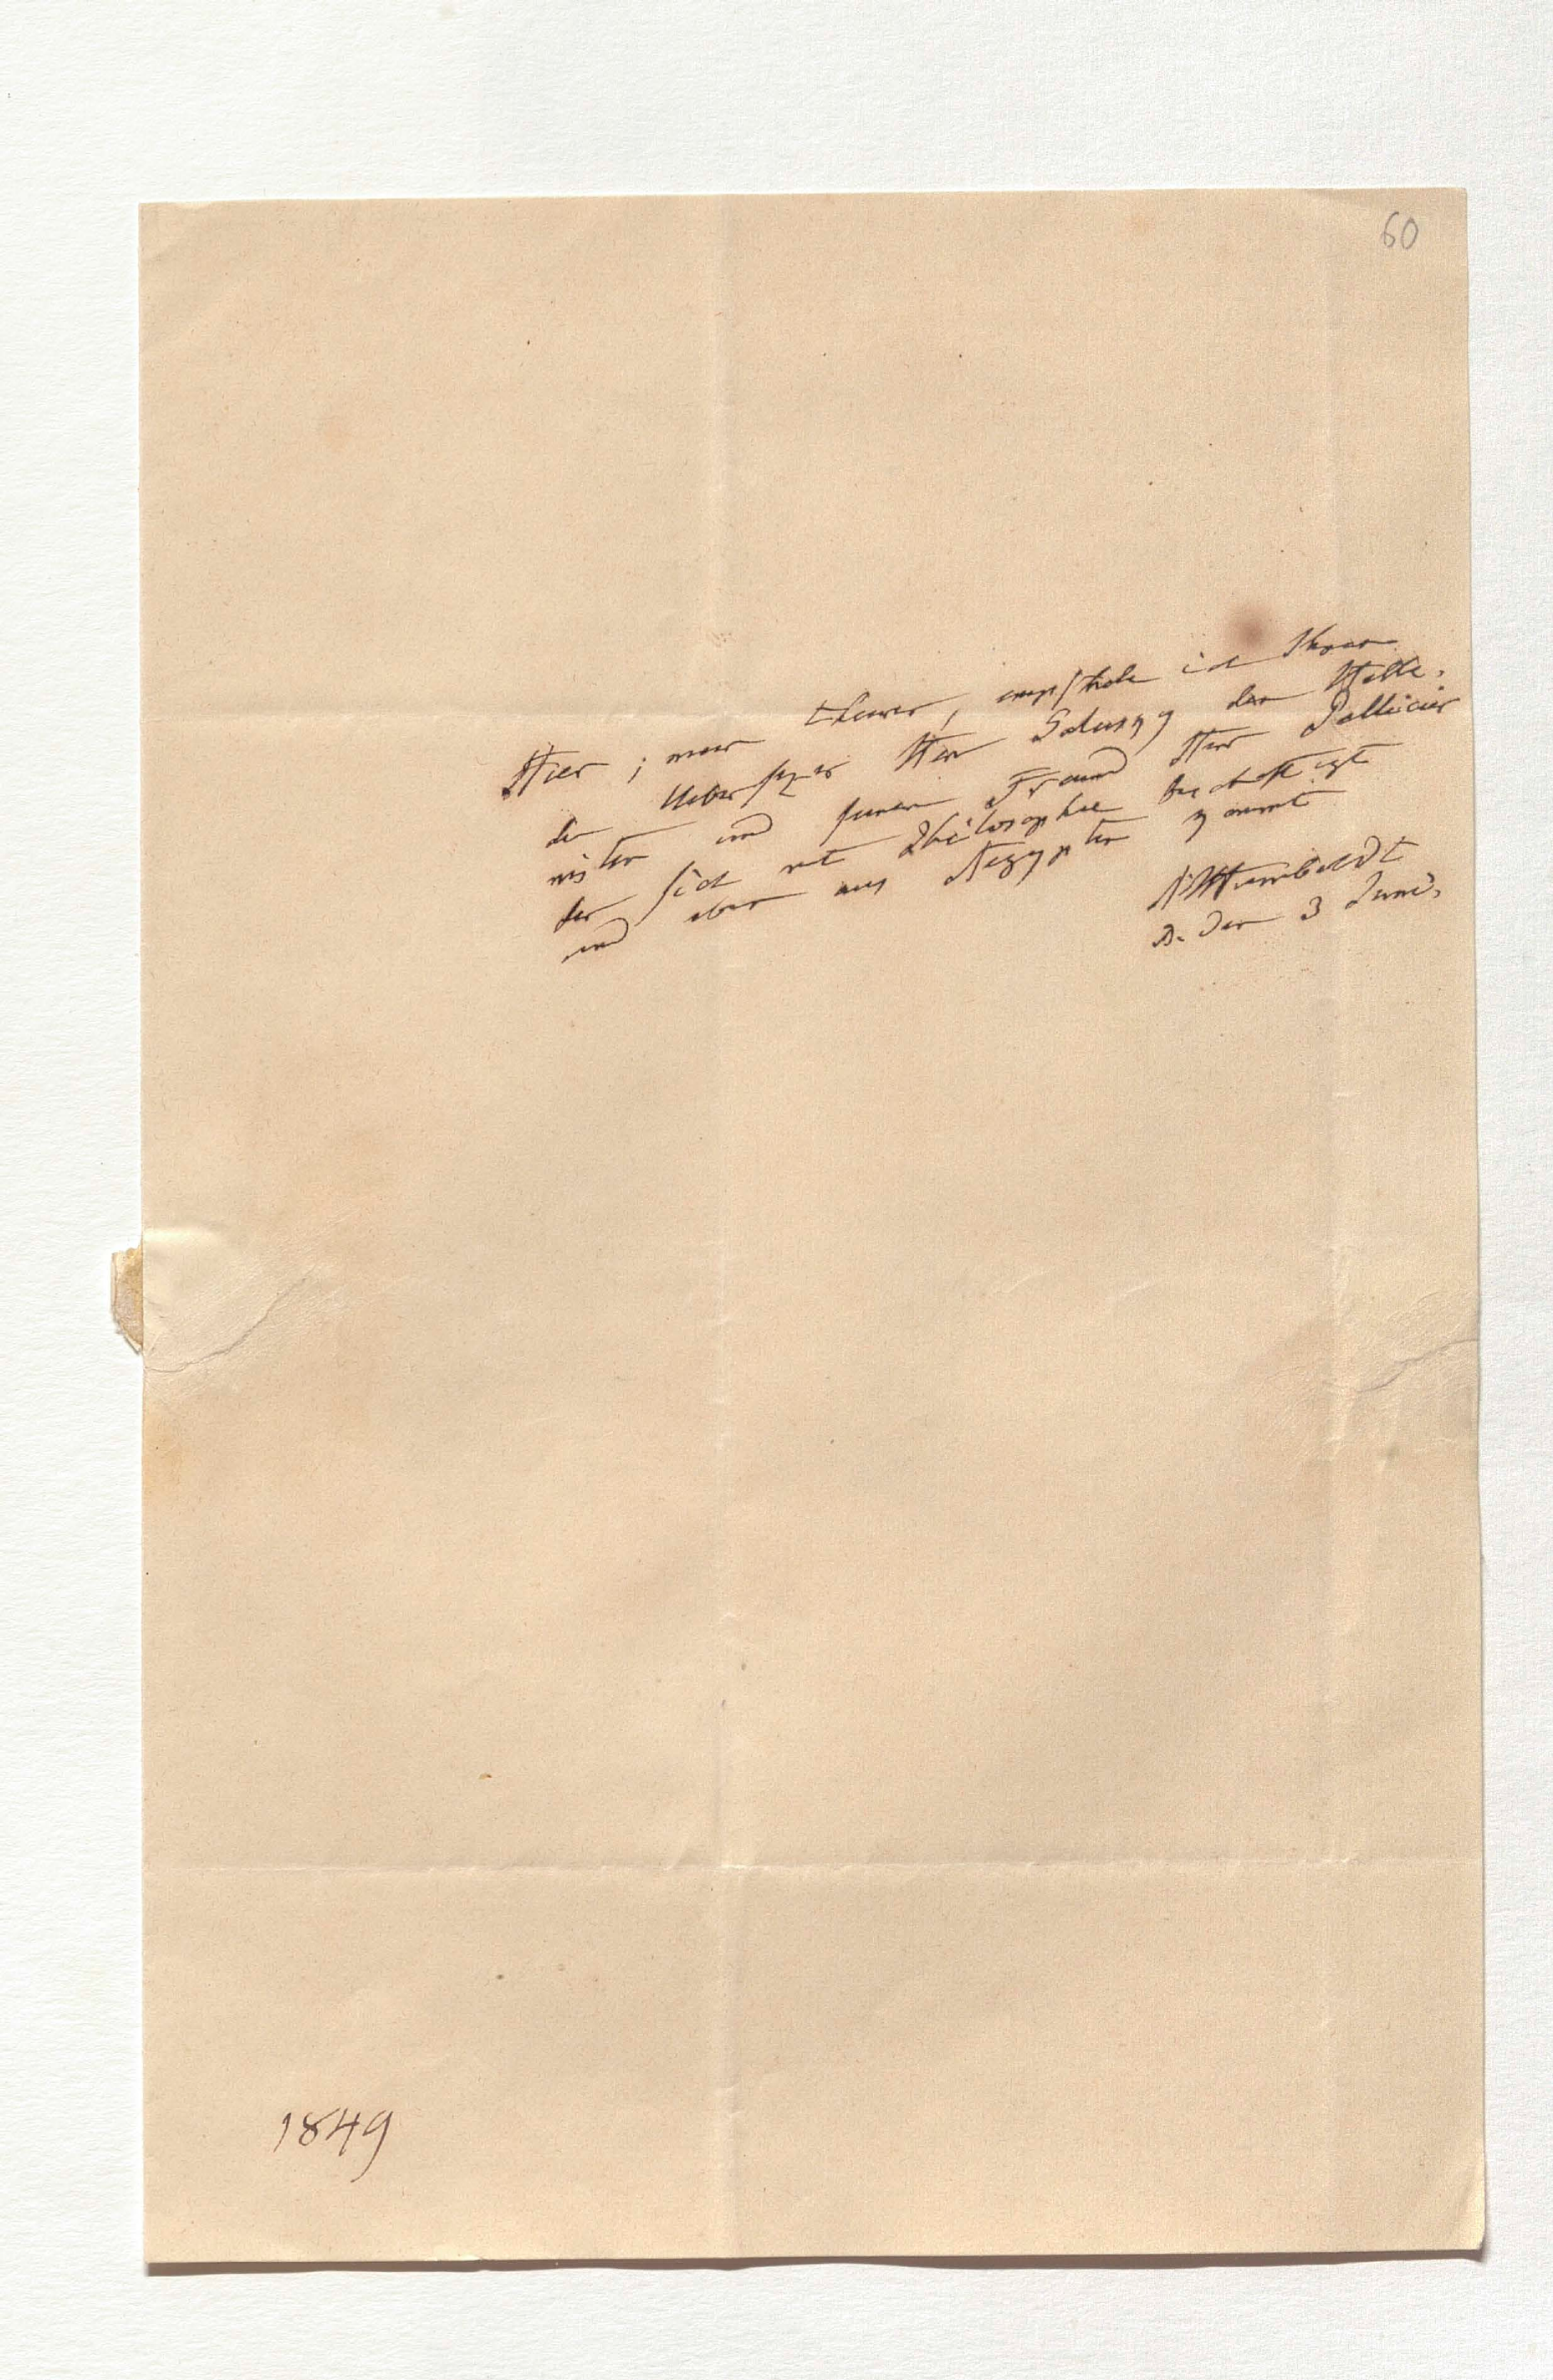 60
Hier, mein theurer, empfehle ich Ihnen
den Uebersezer Herr Galusky den Helle,
nisten und seinen Freund Herr Pellicier
der sich mit Philosophie beschäftigt
und eben aus Aegypten kommt
AHumboldt
B. den 3 Juni,
1849